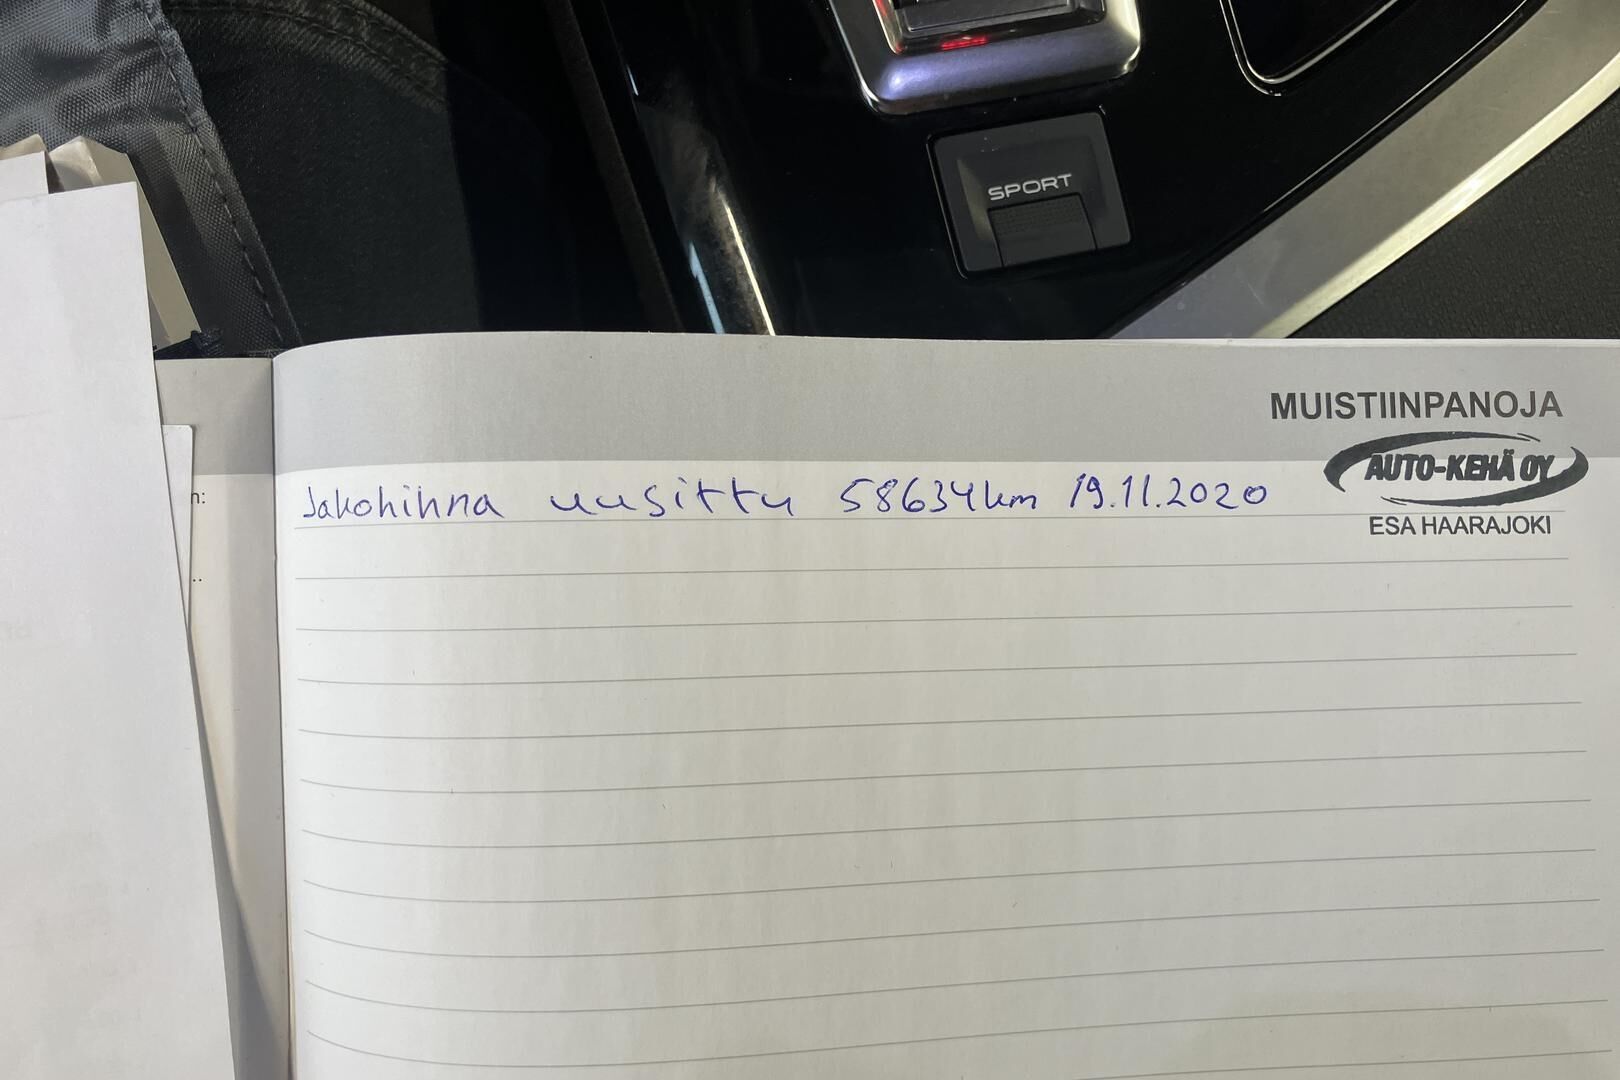 SPORT
MUISTIINPANOJA
AUTO-KEHÄ OY
Jakohihna uusittu 58634km 19.11.2020
ESA HAARAJOKI
n: